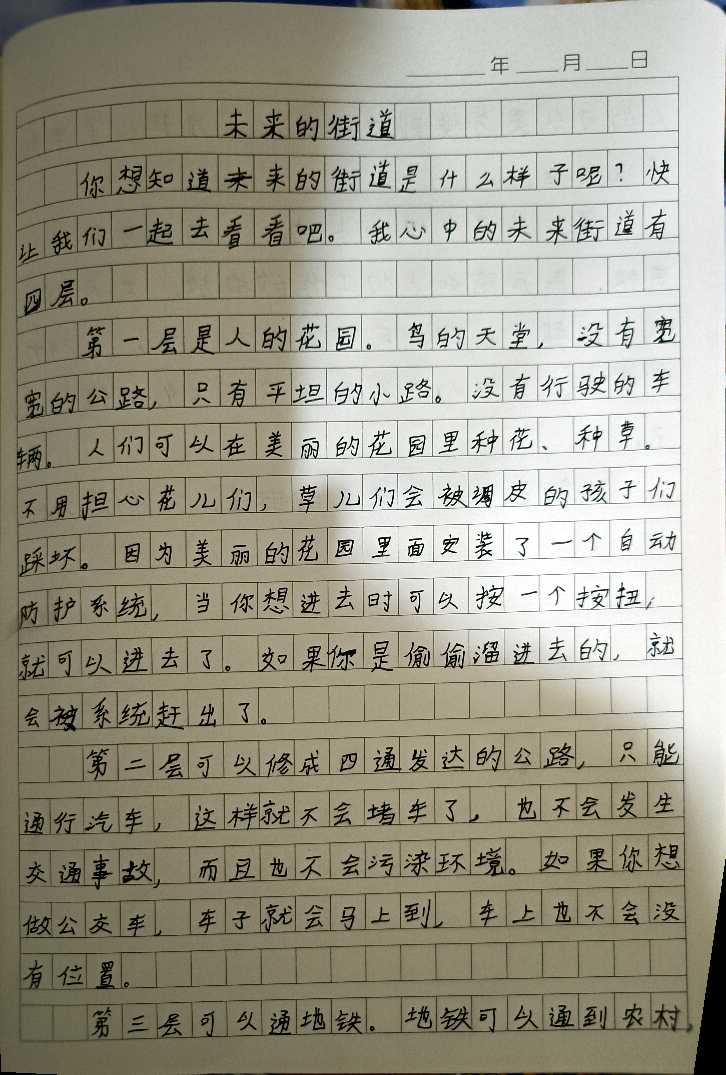 年 月 日
未来的街道
你想知道未来的街道是什么样子呢？快
让我们一起去看看吧。我心中的未来街道有
四层。
第一层是人的花园。鸟的天堂，没有宽
宽的公路，只有平坦的小路。没有行驶的车
辆。人们可以在美丽的花园里种花、种草。
不用担心花儿们，草儿们会被调皮的孩子们
踩坏。因为美丽的花园里面安装了一个自动
防护系统，当你想进去时可以按一个按扭，
就可以进去了。如果你是偷偷溜进去的，就
会被系统赶出了。
第二层可以修成四通发达的公路，只能
通行汽车，这样就不会堵车了，也不会发生
交通事故，而且也不会污染环境。如果你想
做公交车，车子就会马上到，车上也不会没
有位置。
第三层可以通地铁。地铁可以通到农村，